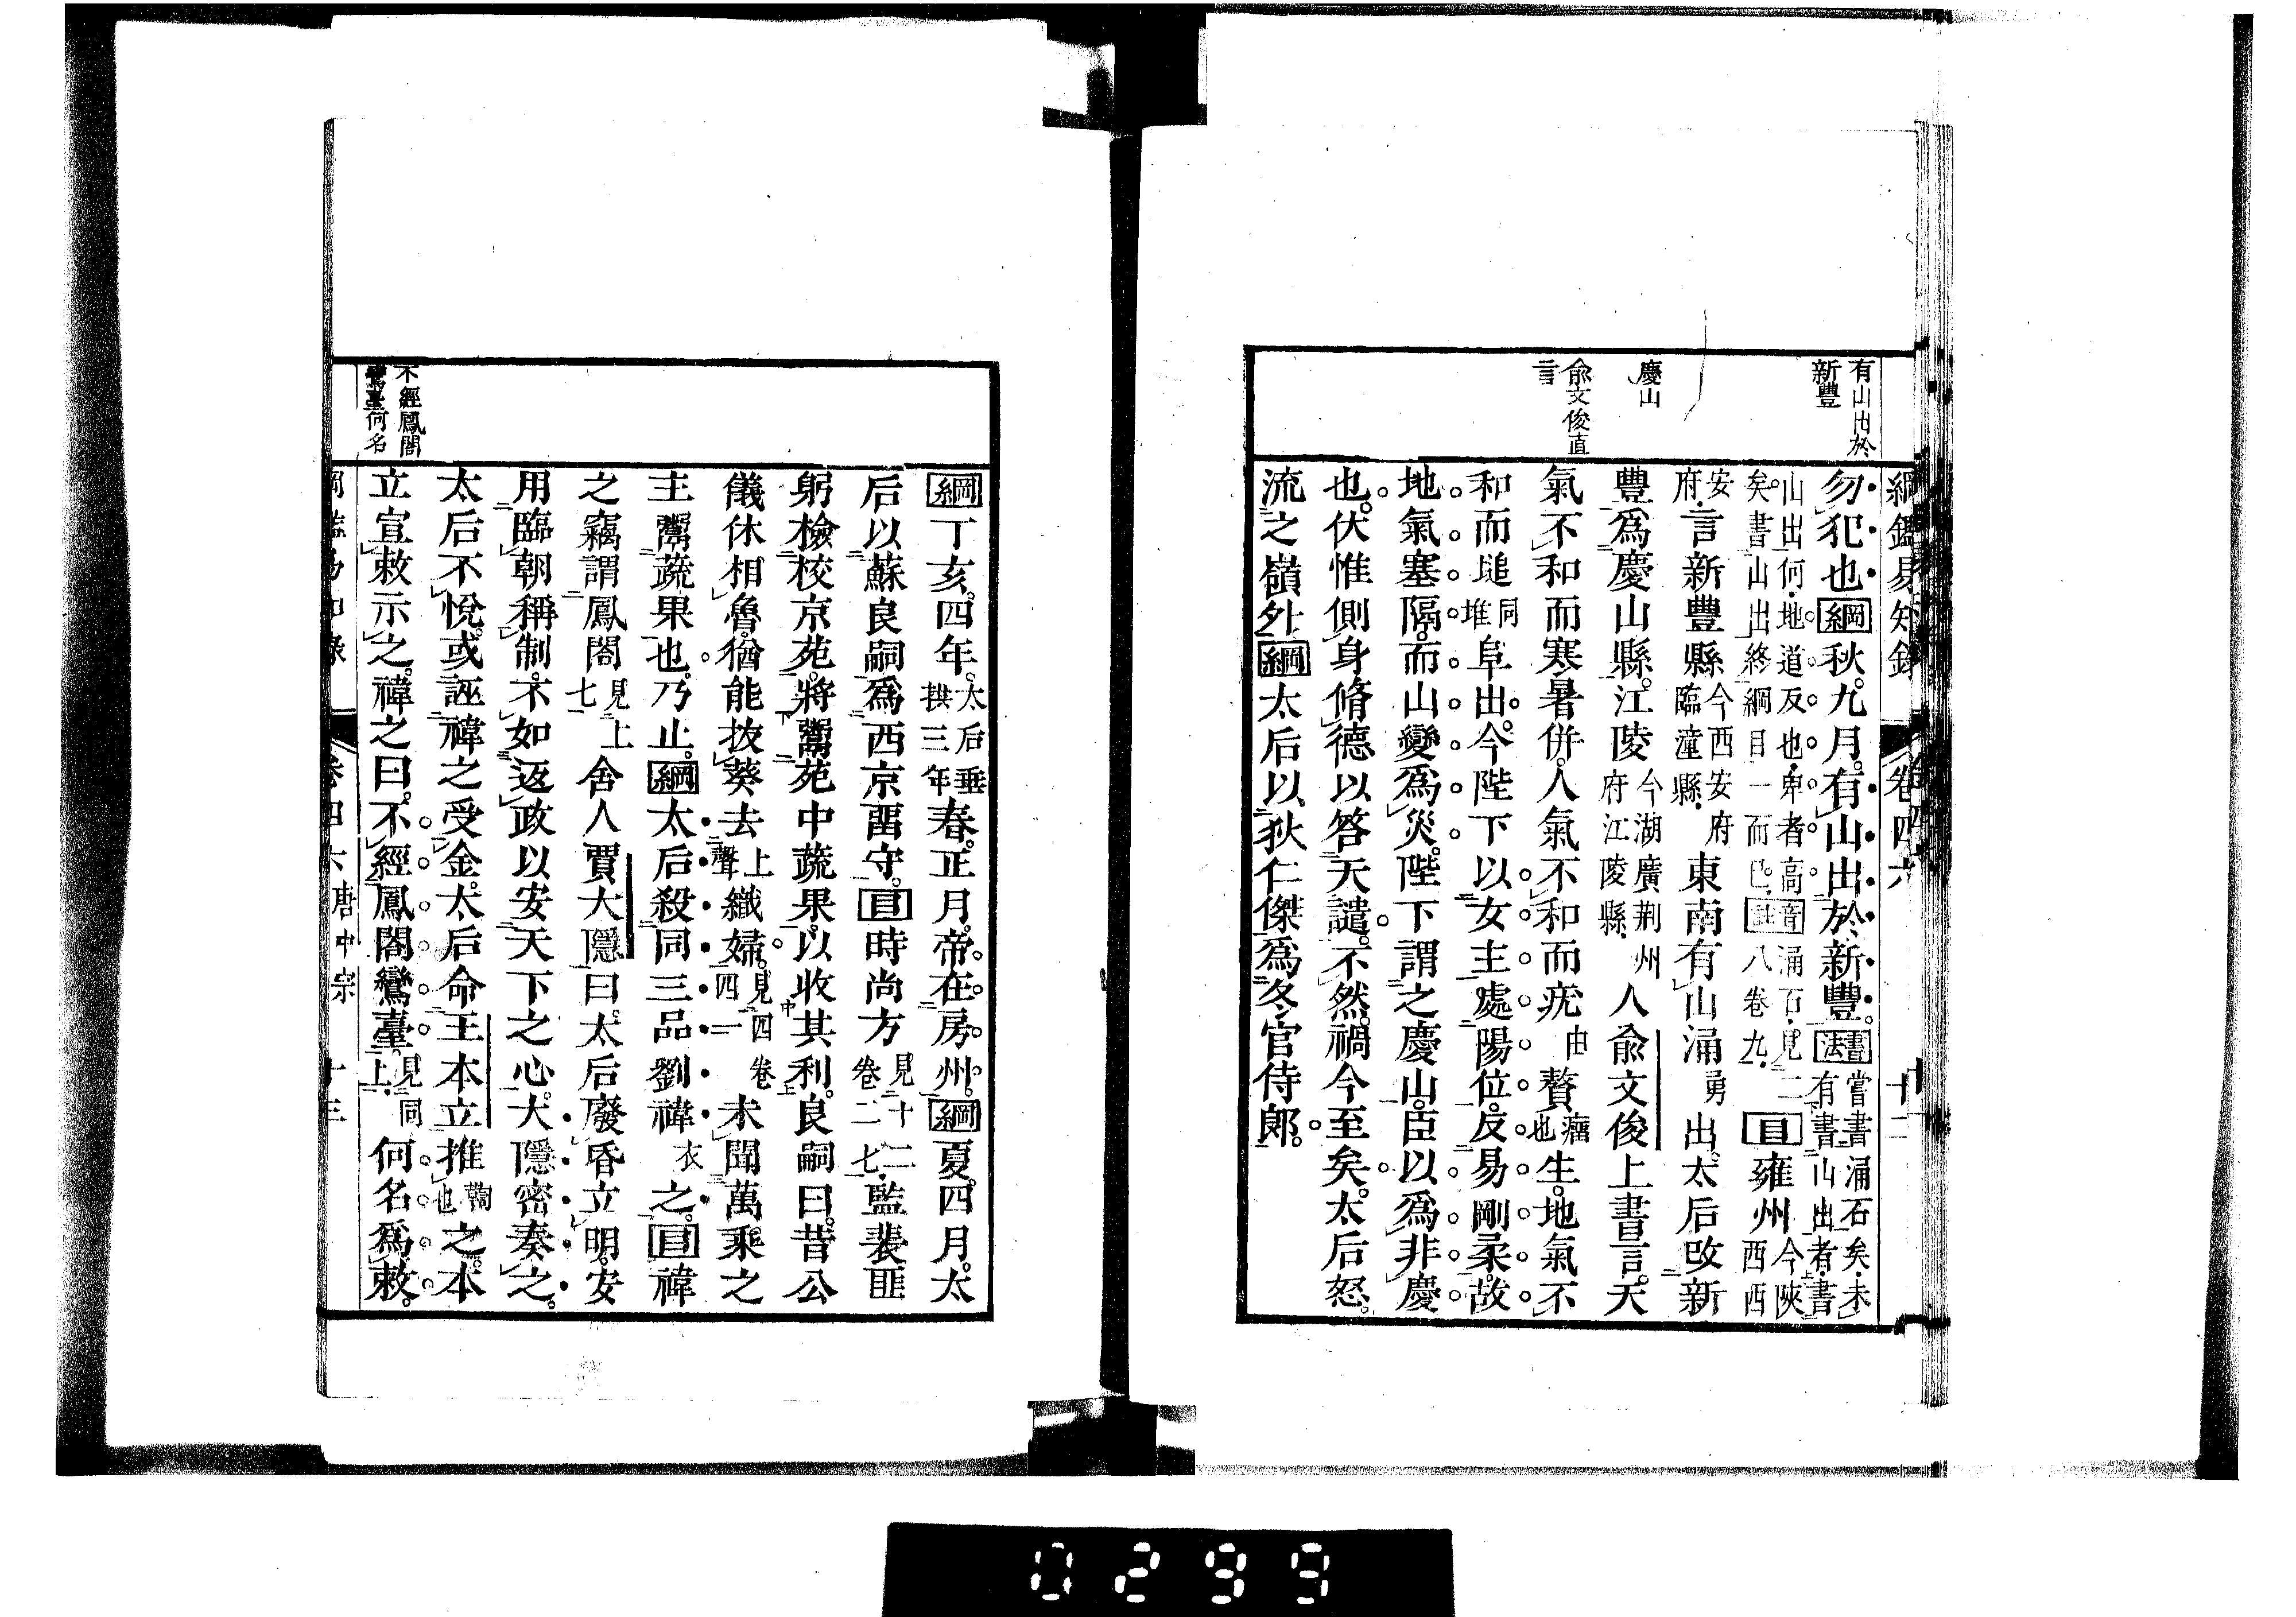 綱鑑易知錄 卷四六 十二
有山出於
新豐
慶山
俞文俊直
言
勿犯也綱秋九月有山出於新豐書法當書涌石矣未有書山出者書
山出何地道反也卑者高矣書山出終綱目一而已註音涌石見二八卷九目雍州今陝西西
安府言新豐縣今西安府臨潼縣東南有山涌勇出太后改新
豐為慶山縣江陵今湖廣荆州府江陵縣人俞文俊上書言天
氣不和而寒暑併人氣不和而疣由贅瘤也生地氣不
和而塠同堆阜出今陛下以女主處陽位反易剛柔故
地氣塞隔而山變為災陛下謂之慶山臣以為非慶
也伏惟側身脩德以答天譴不然禍今至矣太后怒
流之嶺外綱太后以狄仁傑為冬官侍郎
綱丁亥四年太后垂拱三年春正月帝在房州綱夏四月太
后以蘇良嗣為西京畱守目時尚方見十二卷二七監裴匪
躬檢校京苑將鬻苑中蔬果以收其利良嗣曰昔公
儀休相魯猶能拔葵去上聲織婦見四卷四一未聞萬乘之
主鬻蔬果也乃止綱太后殺同三品劉禕衣之目禕
之竊謂鳳閣見上七舍人賈大隱曰太后廢昏立明安
用臨朝稱制不如返政以安天下之心大隱密奏之
太后不悅或誣禕之受金太后命王本立推鞫也之本
立宣敕示之禕之曰不經鳳閣鸞臺見同上何名為敕
不經鳳閣
鸞臺何名
綱鑑易知錄 卷四六 唐中宗 十三